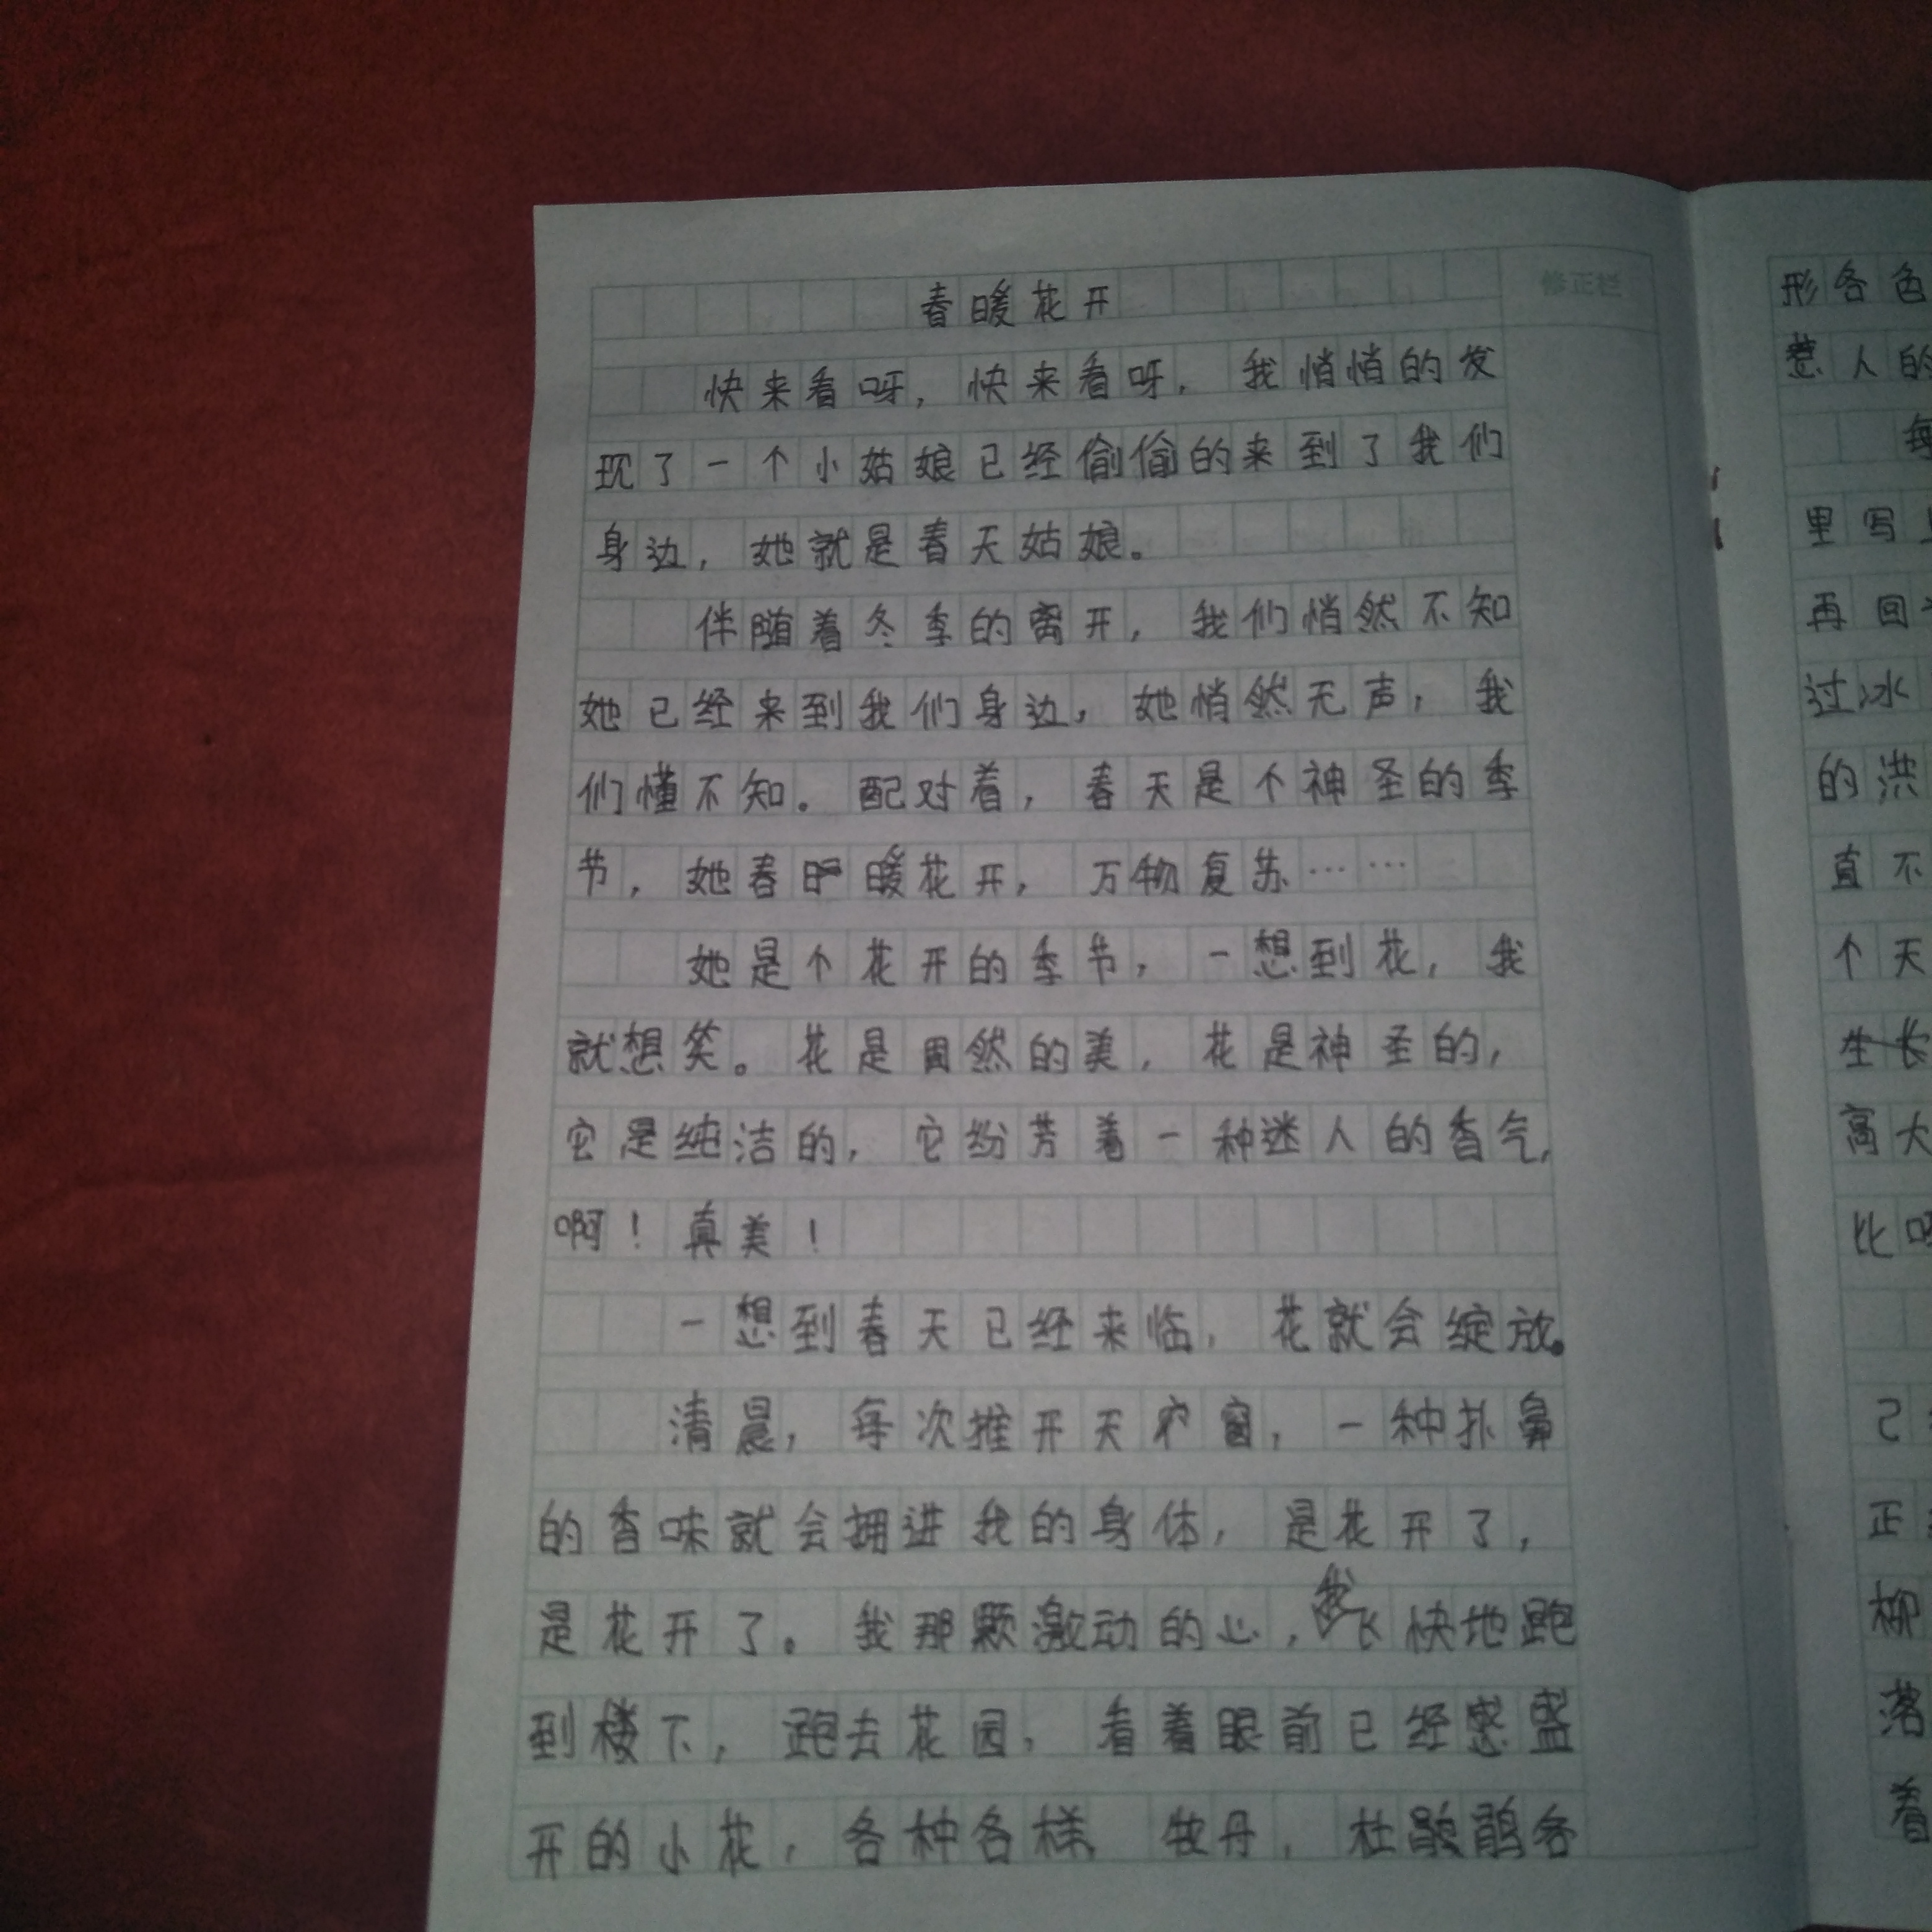 春暖花开
修正栏
快来看呀，快来看呀，我悄悄的发
现了一个小姑娘已经偷偷的来到了我们
身边，她就是春天姑娘。
伴随着冬季的离开，我们悄然不知
她已经来到我们身边，她悄然无声，我
们懂不知。配对着，春天是个神圣的季
节，她春暖花开，万物复苏……
她是个花开的季节，一想到花，我
就想笑。花是固然的美，花是神圣的，
它是纯洁的，它纷芳着一种迷人的香气，
啊！真美！
一想到春天已经来临，花就会绽放。
清晨，每次推开天窗，一种扑鼻
的香味就会拥进我的身体，是花开了，
是花开了。我那颗激动的心，我飞快地跑
到楼下，跑去花园，看着眼前已经盛
开的小花，各种各样，牧丹，杜鹃各
形各色
惹人的
每
里写
再回
过冰
的洪
直不
个天
生长
高大
比
己
正
柳
落
着